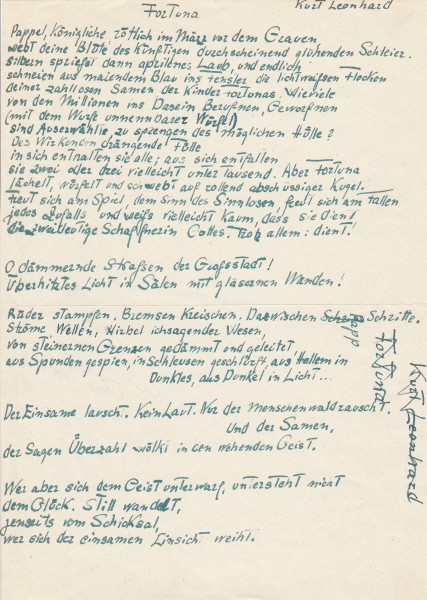 Fortuna
Kurt Leonhard
Pappel, Königliche rötlich im März vor dem Grauen
webt deine Blüte des Künftigen durchscheinend glühenden Schleier.
silbern sprießt dann aprilenes Laub, und endlich
schneien aus maiendem Blau ins Fenster die lichtweißen Flocken
deiner zahllosen Samen der Kinder Fortunas. Wieviele
von den Millionen ins Dasein Berufnen, Geworfnen
(mit dem Wurfe unnennbarer Würfel)
sind Auserwählte, zu sprengen des möglichen Hülle?
Des Wirkenden drängende Fülle
in sich enthalten sie alle; aus sich entfalten
sie zwei oder drei vielleicht unter Tausend. Aber Fortuna
lächelt, würfelt und schwebt auf rollend abschüssiger Kugel.
freut sich am Spiel, dem Sinn des Sinnlosen, freut sich am Fallen
jedes Zufalls und weiß vielleicht kaum, dass sie dient
die zweideutige Schaffnerin Gottes. Trotz allem: dient!
O dämmernde Straßen der Großstadt!
Überhitztes Licht in Sälen mit gläsernen Wänden!
Räder stampfen. Bremsen Kreischen. Dazwischen Schritte.
Ströme, Wellen, Wirbel ichsagender Wesen,
von steinernen Grenzen gedämmt und geleitet
aus Spunden gespien, in Schleusen geschlürft, aus Hellem in
Dunkles, aus Dunkel in Licht...
Der Einsame lauscht. Kein Laut. Nur der Menschenwald rauscht.
Und der Samen,
der Sagen Überzahl wölkt in den wehenden Geist.
Wer aber sich dem Geist unterwarf, untersteht nicht
dem Glück. Still wandelt,
jenseits vom Schicksal,
wer sich der einsamen Einsicht weiht.
Fortuna
Kurt Leonhard